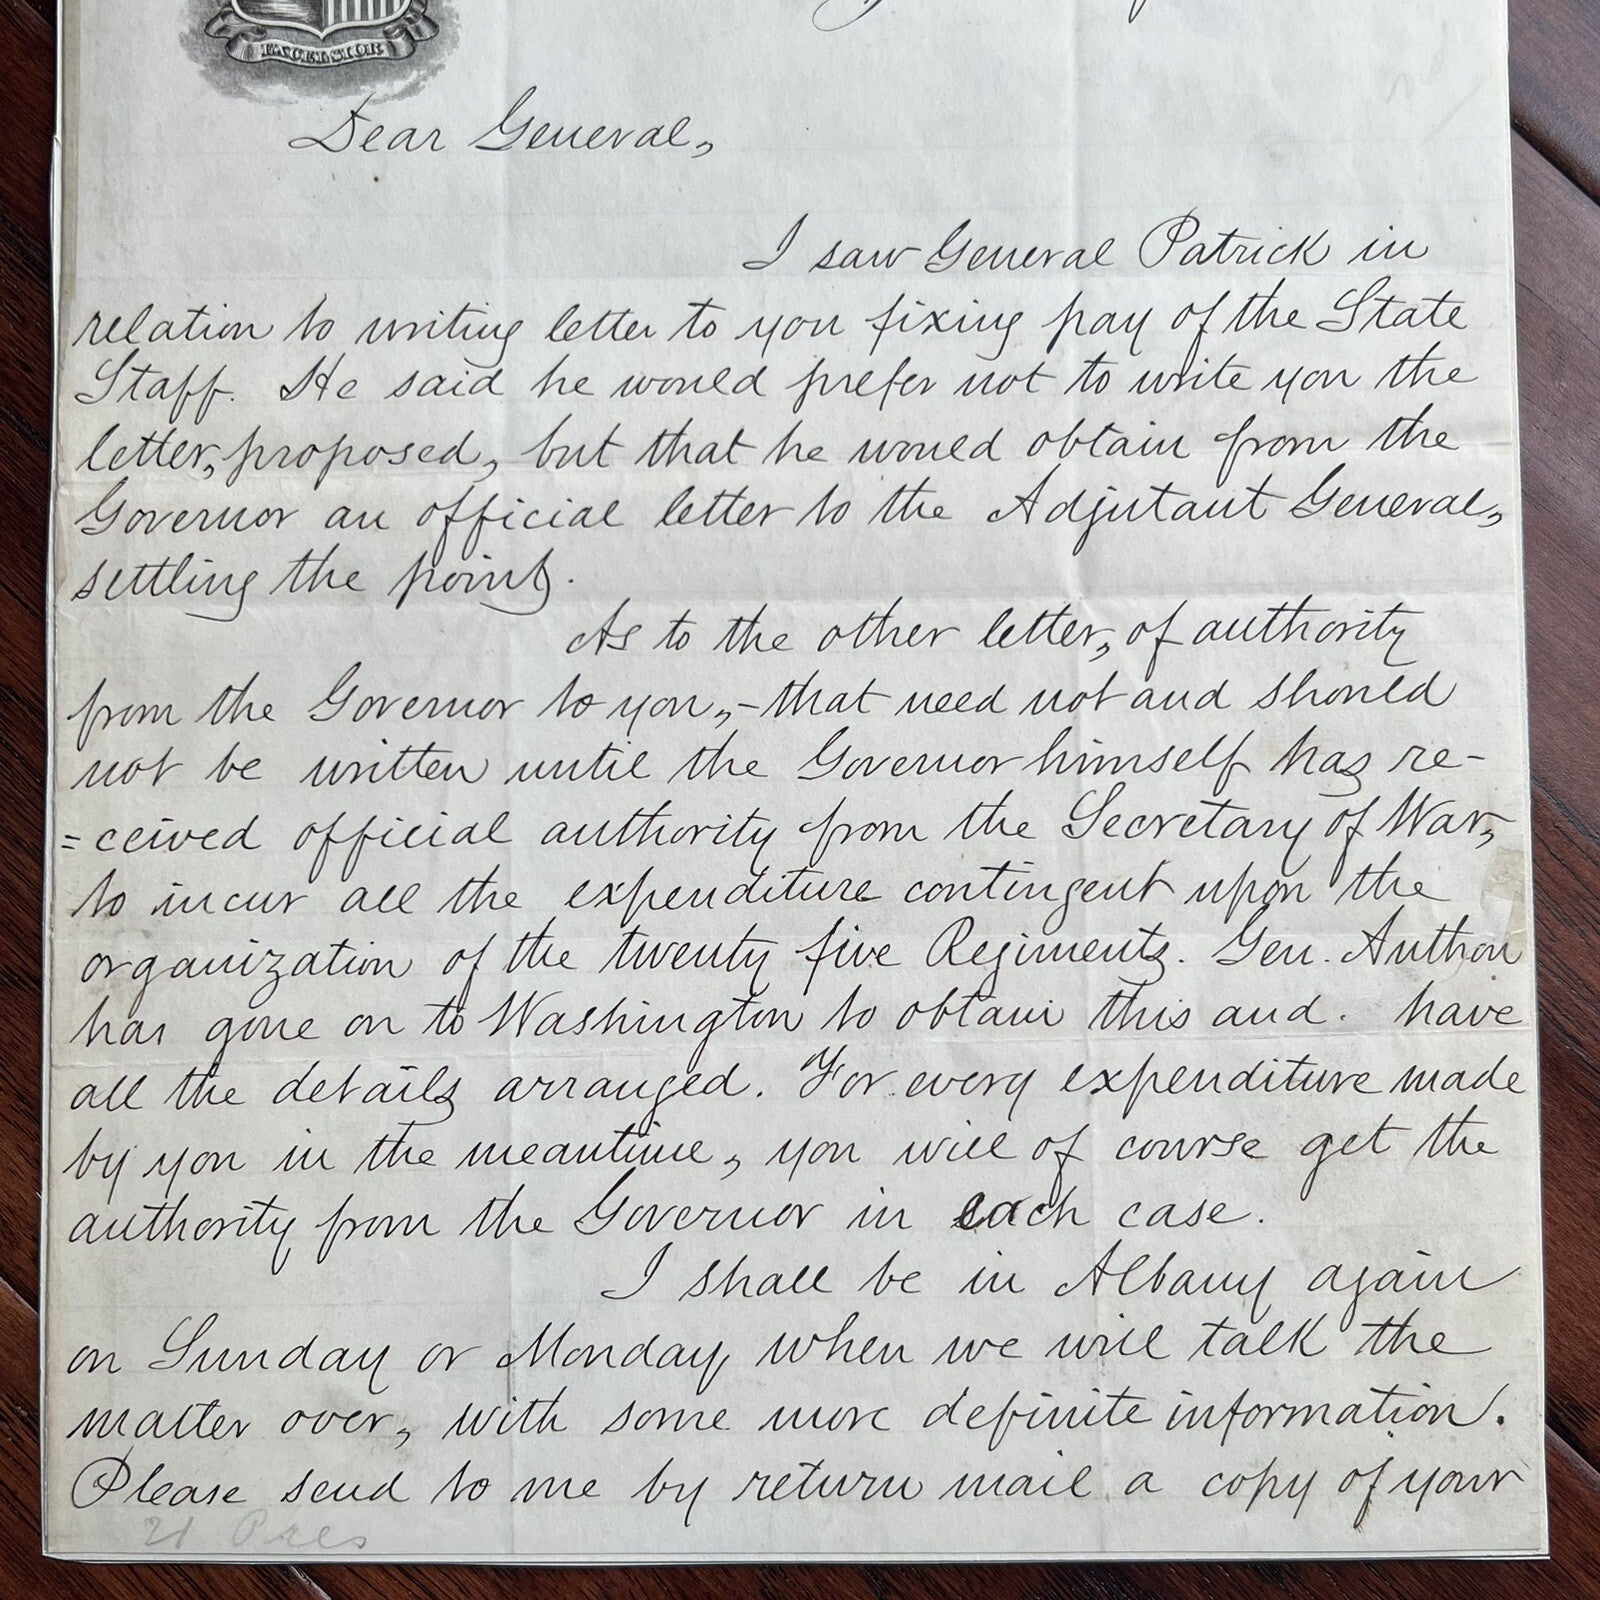 EXCELSIOR
Dear General,
I saw General Patrick in
relation to writing letter to you fixing pay of the State
Staff. He said he would prefer not to write you the
letter, proposed, but that he would obtain from the
Governor an official letter to the Adjutant General,
settling the point.
As to the other letter, of authority
from the Governor to you, - that need not and should
not be written until the Governor himself has re-
=ceived official authority from the Secretary of War,
to incur all the expenditure contingent upon the
organization of the twenty five Regiments. Gen. Anthon
has gone on to Washington to obtain this and . have
all the details arranged. For every expenditure made
by you in the meantime, you will of course get the
authority from the Governor in each case.
I shall be in Albany again
on Sunday or Monday, when we will talk the
matter over, with some more definite information.
Please send to me by return mail a copy of your
21